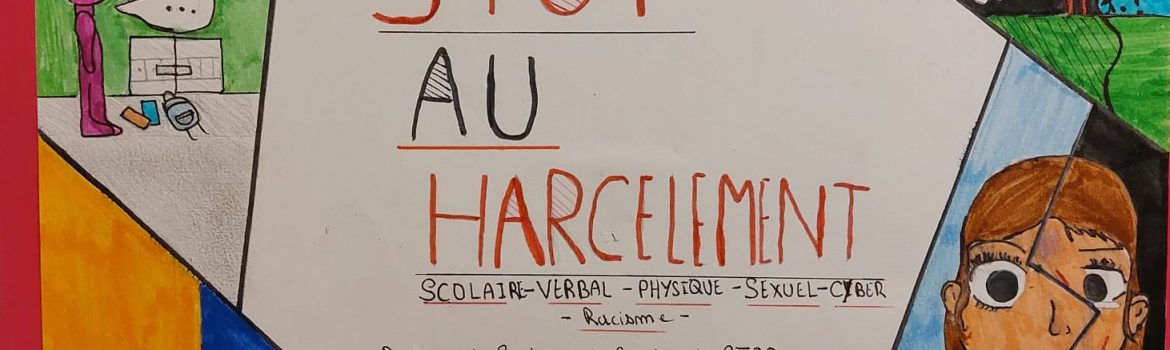 ...
STOP
AU
HARCELEMENT
SCOLAIRE-VERBAL - PHYSIQUE - SEXUEL-CYBER
- Racisme -